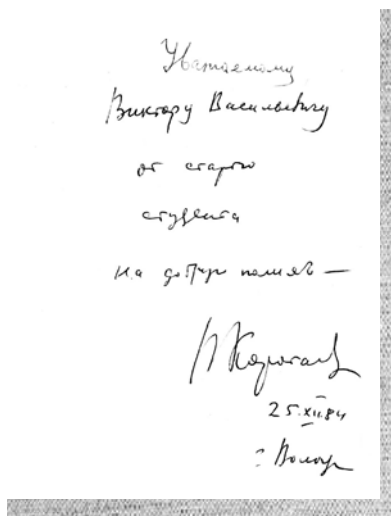 Уважаемому
Виктору Васильевичу
от старого
студента
на добрую память —
В Коротаев
25.XII.84
г. Вологда